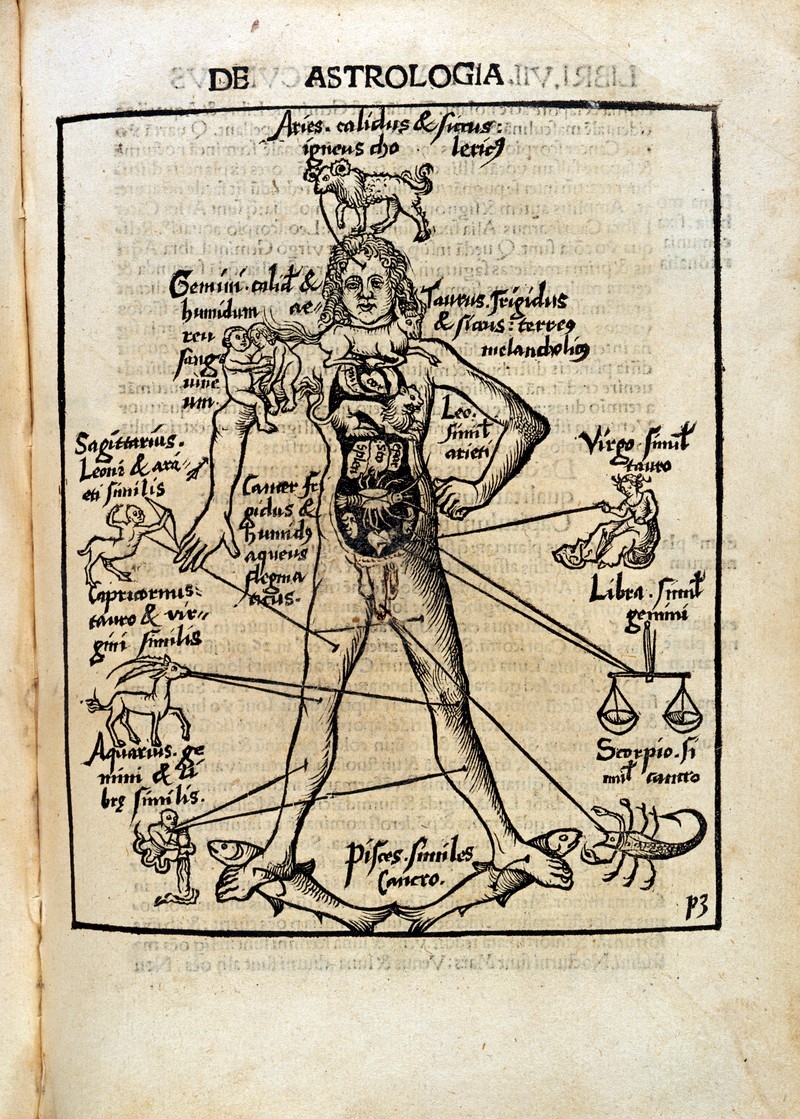 DE ASTROLOGIA
Aries. calidus & siccus:
igneus cho lericꝰ
Gemini. calid᷒ &
humidum ae-
reu
sang
uine
um.
Taurus. frigidus
& siccus: terreꝰ
melancholicꝰ
Leo.
simil᷒
arieti
Virgo. simil᷒
tauro
Sagittarius.
Leoni & ari-
eti similis
Cancer fri
gidus &
humidꝰ
aqueus
flegma
ticus.
Capricornus.
tauro & vir-
gini similis
Libra. simil᷒
gemini
Aquarius. ge
mini & li
brę similis.
Scorpio. si
mil᷒ cancro
Pisces. similes
Cancro.
p3